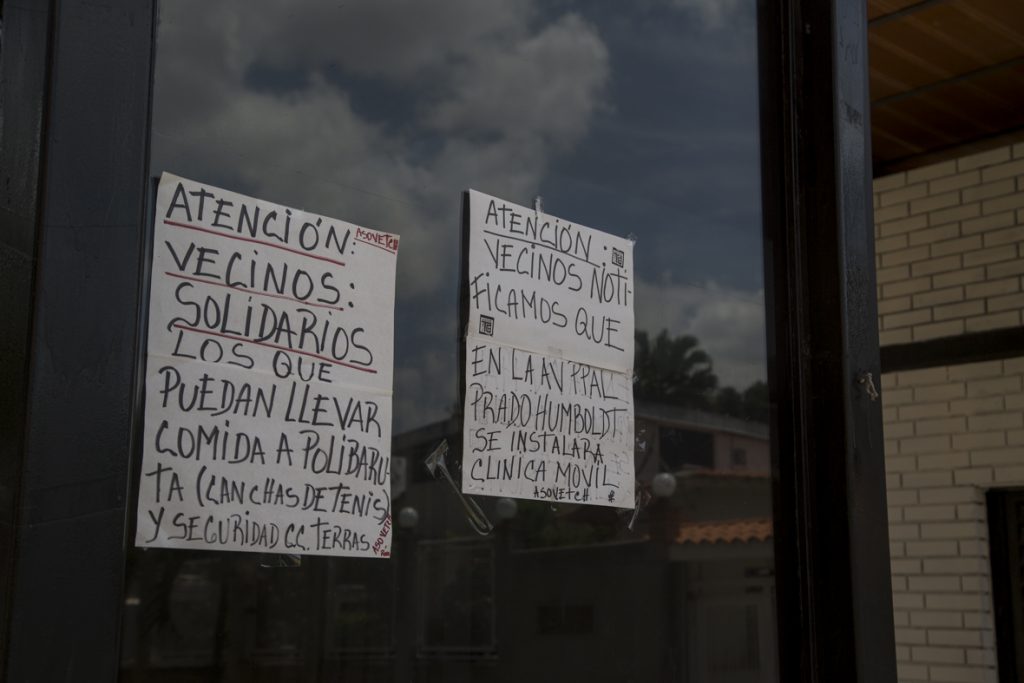 ATENCIÓN:
ASOVETCH
VECINOS:
SOLIDARIOS
LOS QUE
PUEDAN LLEVAR
COMIDA A POLIBARU-
TA (CANCHAS DE TENIS)
Y SEGURIDAD C.C. TERRAS
ATENCIÓN:
VECINOS NOTI-
FICAMOS QUE
EN LA AV PPAL
PRADO HUMBOLDT
SE INSTALARA
CLINICA MOVIL
ASOVETCH